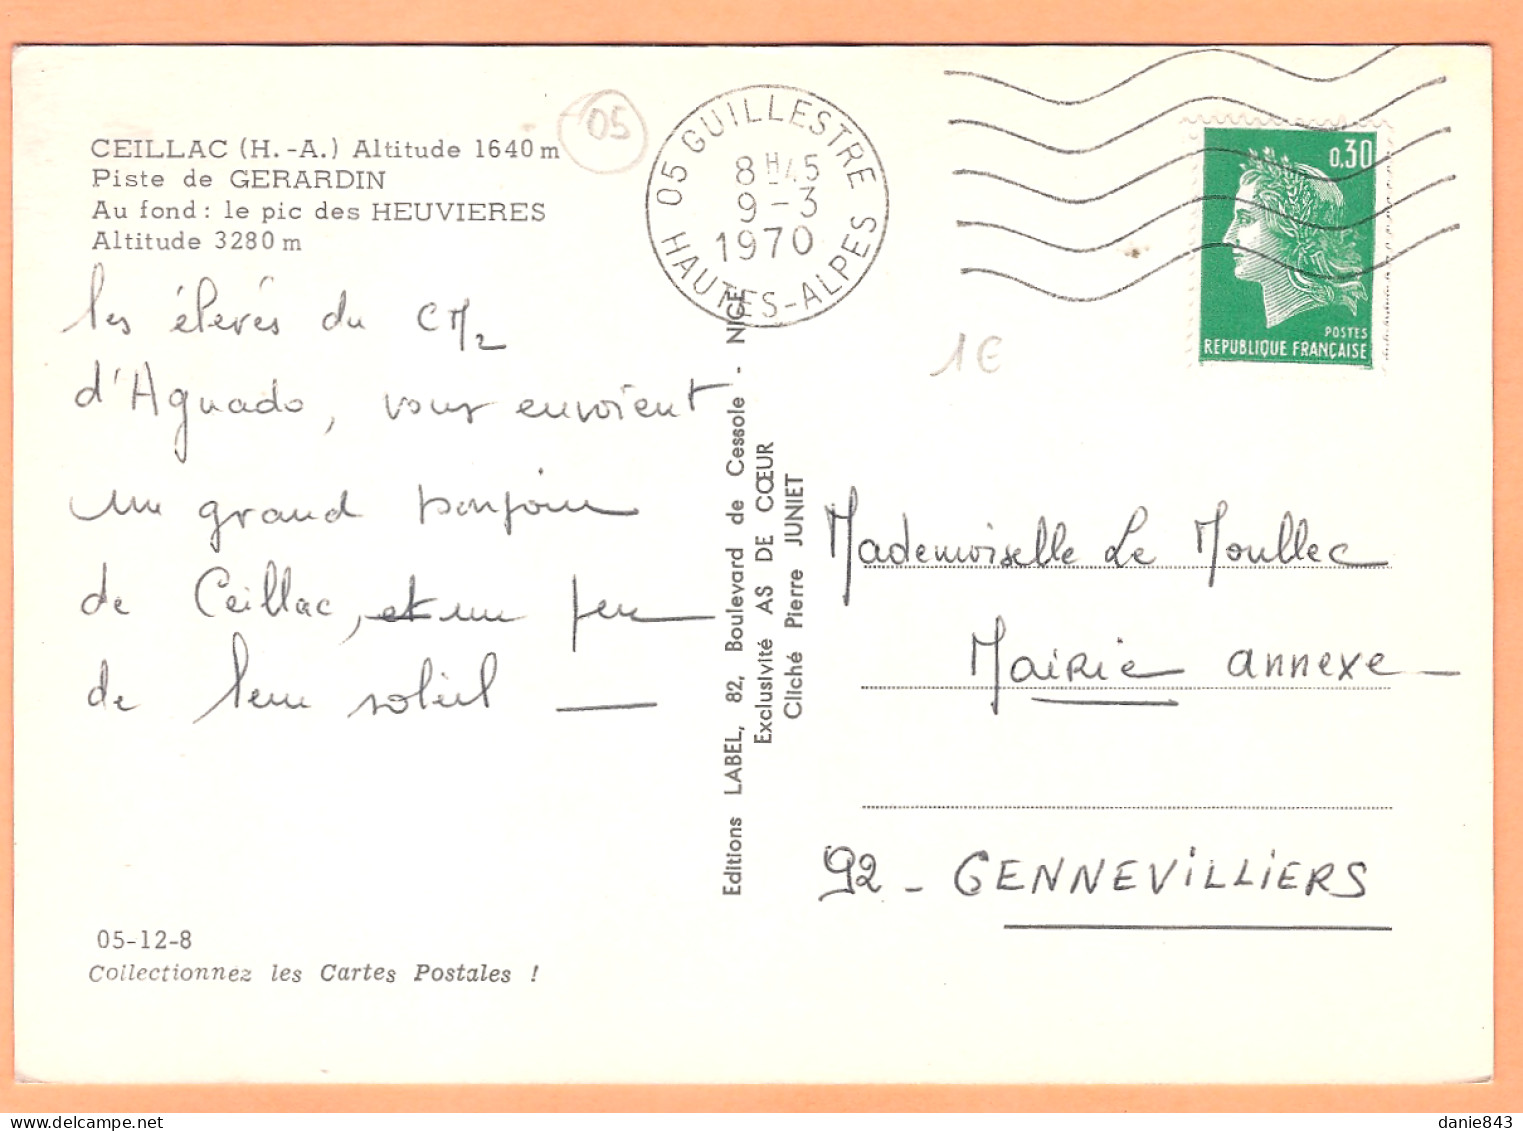 CEILLAC (H.-A.) Altitude 1640 m
Piste de GERARDIN
Au fond : le pic des HEUVIERES
Altitude 3280 m
05
05 GUILLESTRE
8H45
9-3
1970
HAUTES-ALPES
0,30
POSTES
REPUBLIQUE FRANÇAISE
1€
les élevés du CM2
d'Aguado, vous envoient
un grand bonjour
de Ceillac, et un peu
de leur soleil
Editions LABEL, 82, Boulevard de Cessole - NICE
Exclusivité AS DE CŒUR
Cliché Pierre JUNIET
Mademoiselle Le Moullec
Mairie annexe
92 - GENNEVILLIERS
05-12-8
Collectionnez les Cartes Postales !
danie843